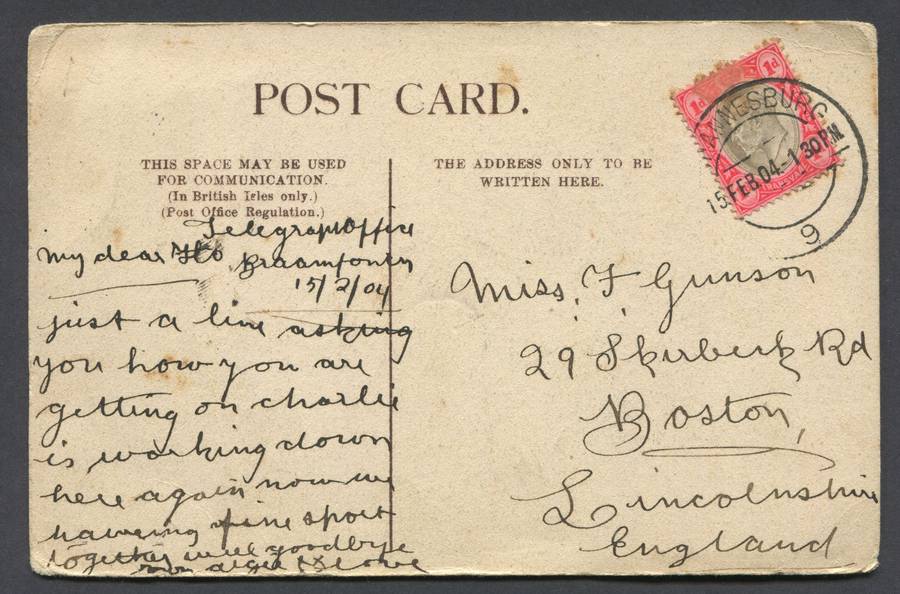 POST CARD.
THIS SPACE MAY BE USED
FOR COMMUNICATION.
(In British Isles only.)
(Post Office Regulation.)
THE ADDRESS ONLY TO BE
WRITTEN HERE.
1d 1d
ANNESBURG
15 FEB 04 - 1 30 PM
9
Telegraph Office
Braamfontein
15/2/04
my dear Flo
just a line asking
you how you are
getting on charlie
is working down
here again now we
haveing fine sport
together well goodbye
Miss, F Gunson
29 Skirbeck Rd
Boston,
Lincolnshire
England